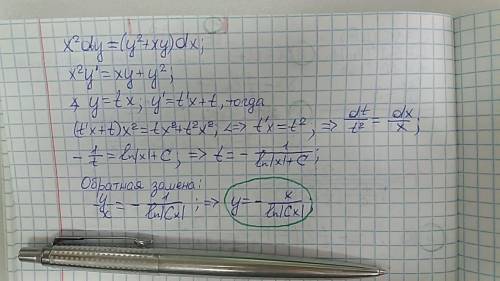 x²dy=(y²+xy)dx;
x²y'=xy+y²;
y=tx; y'=t'x+t, тогда
(t'x+t)x²=tx²+t²x², <=> t'x=t², => dt/t²=dx/x;
-1/t=ln|x|+C, => t=-1/(ln|x|+C);
Обратная замена:
y/x=-1/ln|Cx|; => y=-x/ln|Cx|